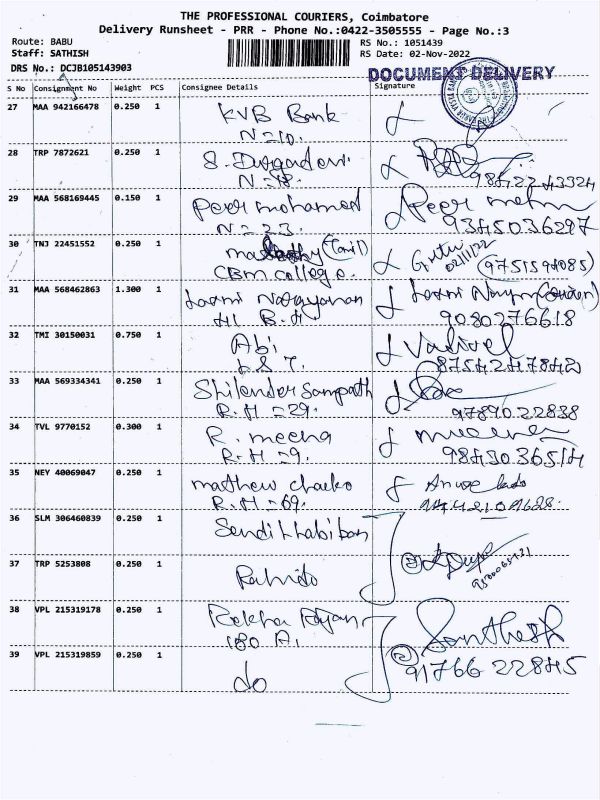 THE PROFESSIONAL COURIERS, Coimbatore
Delivery Runsheet - PRR - Phone No.:0422-3505555 - Page No.:3
Route: BABU
RS No.: 1051439
Staff: SATHISH
RS Date: 02-Nov-2022
DRS No.: DCJB105143903
DOCUMENT DELIVERY
S No Consignment No Weight PCS Consignee Details Signature
27 MAA 942166478 0.250 1 KVB Bank
N=10.
28 TRP 7872621 0.250 1 S. Durgadevi
N=18. 9842243324
29 MAA 568169445 0.150 1 Peer mohamed Peer
N=23. 9345036297
30 TNJ 22451552 0.250 1 (Tamil) 02/11/22
CBM college. (9751594085)
31 MAA 568462863 1.300 1 Laxmi Narayanan Laxmi
H1 B.H 9080276618
32 TMI 30150031 0.750 1 Abi Vadivel
8754247842
33 MAA 569334341 0.250 1 Shilender Sampath
R.H=29. 9789022838
34 TVL 9770152 0.300 1 R. meena meena
R.H=9. 9843036514
35 NEY 40069047 0.250 1 mathew chacko
R.H=69.
36 SLM 306460839 0.250 1
37 TRP 5253808 0.250 1
38 VPL 215319178 0.250 1 Rekha Rajan Santhosh
180 A.
39 VPL 215319859 0.250 1 do (2) 91766 22845